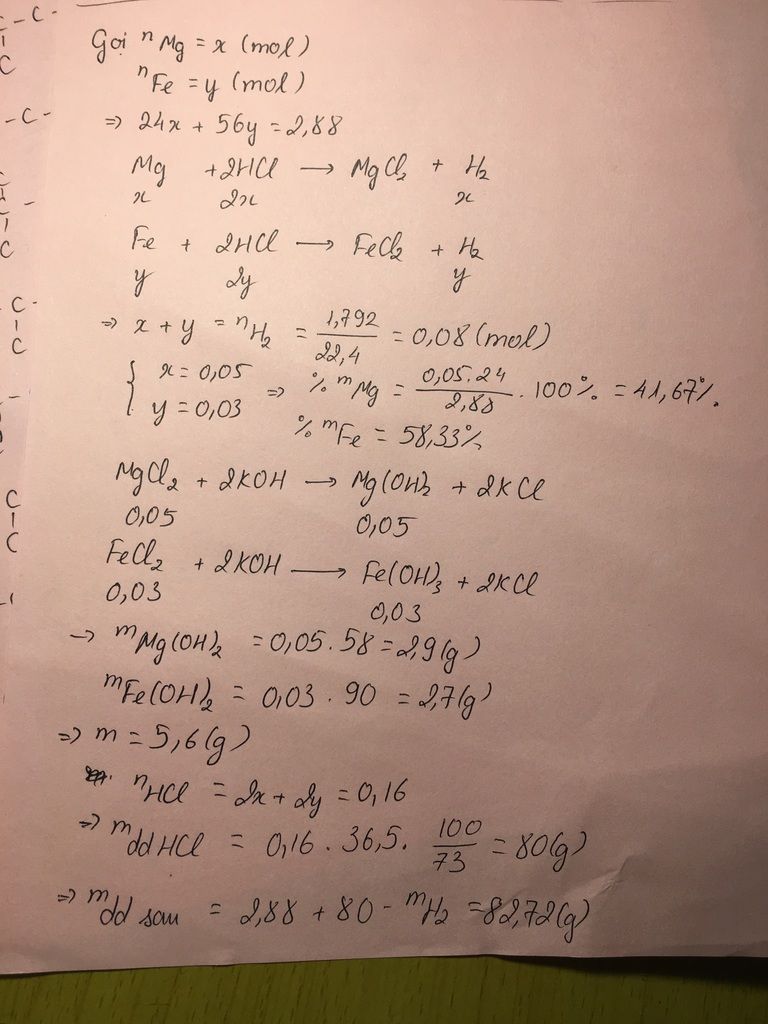 Gọi nMg = x (mol)
nFe = y (mol)
=> 24x + 56y = 2,88
Mg + 2HCl → MgCl2 + H2
x 2x x
Fe + 2HCl → FeCl2 + H2
y 2y y
=> x + y = nH2 = 1,792 / 22,4 = 0,08 (mol)
{ x = 0,05 y = 0,03 => % mMg = 0,05.24 / 2,88 . 100% = 41,67%
% mFe = 58,33%
MgCl2 + 2KOH → Mg(OH)2 + 2KCl
0,05 0,05
FeCl2 + 2KOH → Fe(OH)3 + 2KCl
0,03 0,03
→ mMg(OH)2 = 0,05.58 = 2,9(g)
mFe(OH)2 = 0,03.90 = 2,7(g)
=> m = 5,6(g)
nHCl = 2x + 2y = 0,16
=> mdd HCl = 0,16.36,5. 100 / 73 = 80(g)
=> mdd sau = 2,88 + 80 - mH2 = 82,72(g)
-C-
C
-C-
C
C
C -
C
C
C